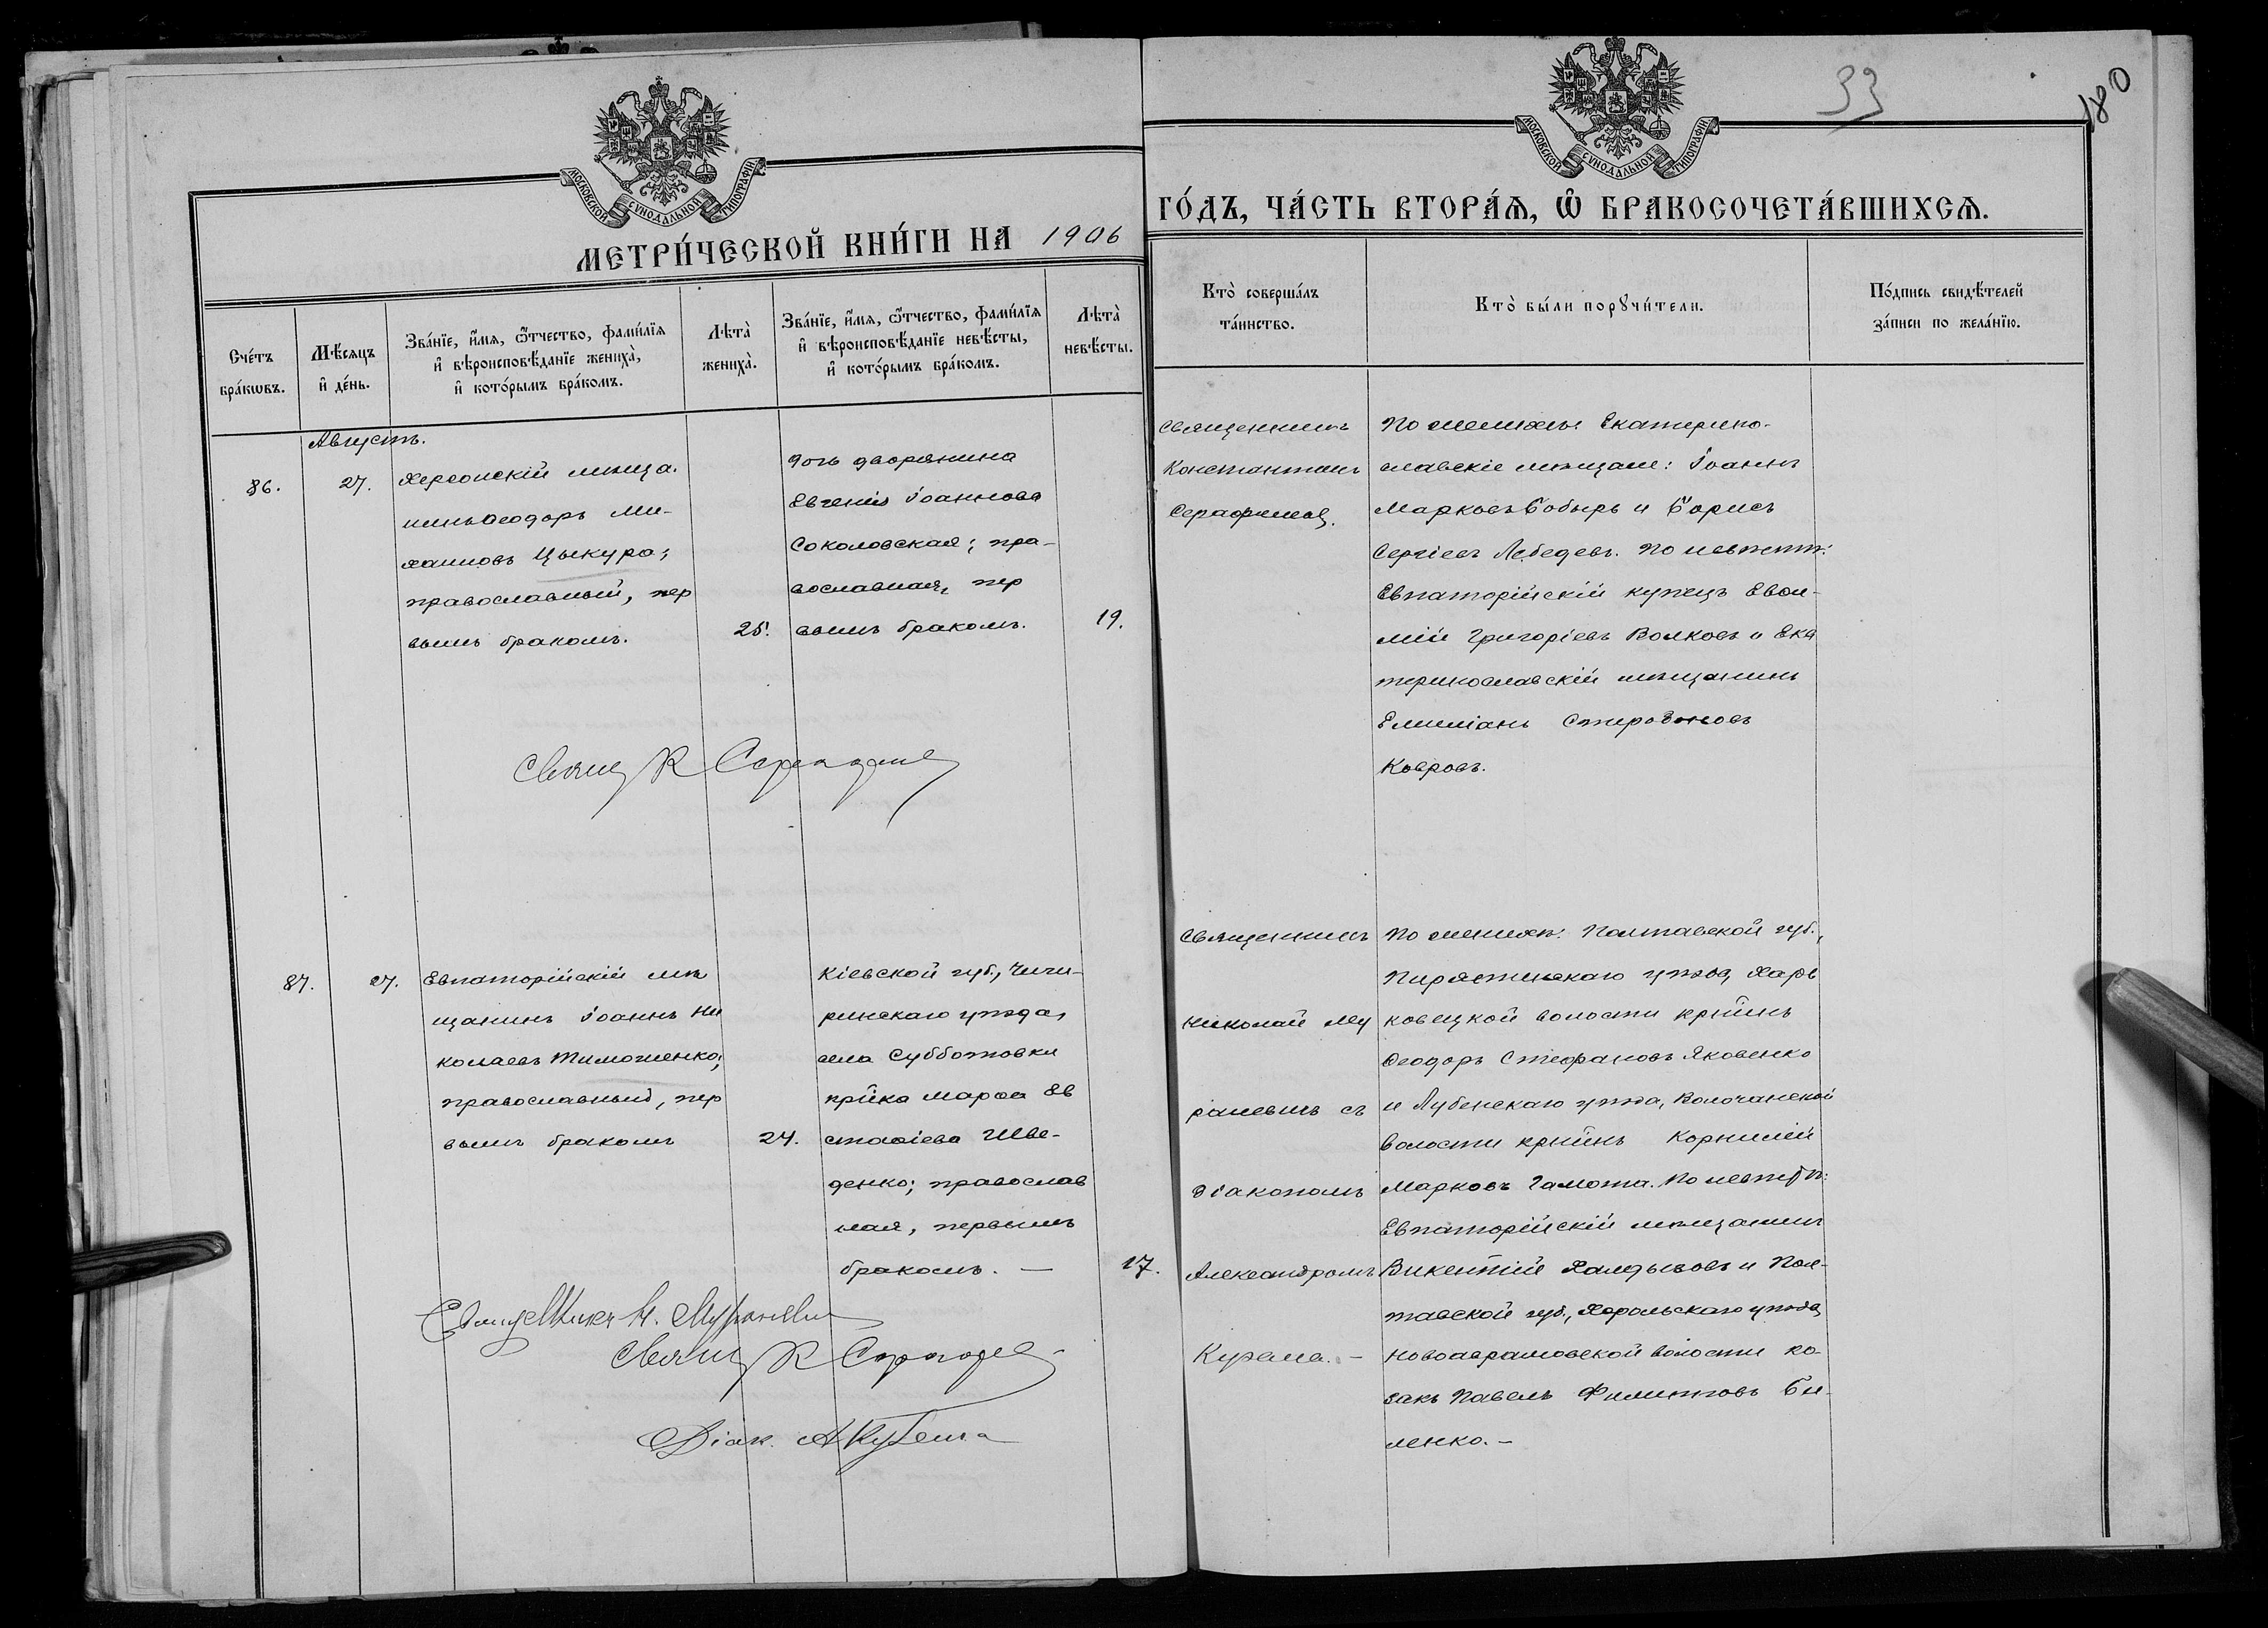 33
180
МОСКОВСКОЙ СѴНОДАЛЬНОЙ ТИПОГРАФІИ
МОСКОВСКОЙ СѴНОДАЛЬНОЙ ТИПОГРАФІИ
МЕТРИ́ЧЕСКОЙ КНИ́ГИ НА 1906
ГО́ДЪ, ЧА́СТЬ ВТОРА́Ѧ, Ѡ҆ БРАКОСОЧЕТА́ВШИХСѦ.
Сче́тъ
бра́кѡвъ.
Мѣ́сяцъ
и҆ де́нь.
Зва́нїе, и҆́мя, ѻ҆́тчество, фами́лїя
и҆ вѣроисповѣ́данїе жениха̀,
и҆ кото́рымъ бра́комъ.
Лѣта̀
жениха̀.
Зва́нїе, и҆́мя, ѻ҆́тчество, фами́лїя
и҆ вѣроисповѣ́данїе невѣ́сты,
и҆ кото́рымъ бра́комъ.
Лѣта̀
невѣ́сты.
Кто̀ соверша́лъ
та́инство.
Кто̀ бы́ли порꙋчи́тели.
По́дпись свидѣ́телей
за́писи по жела́нїю.
Августъ.
86.
27.
Херсонскій мѣща.
нинъ Ѳеодоръ Ми-
хаиловъ Цыкура;
православный, пер
вымъ бракомъ.
25.
дочь дворянина
Евгенія Іоаннова
Соколовская; пра-
вославная, пер
вымъ бракомъ.
19.
Священникъ
Константинъ
Серафимовъ.
По женихѣ: Екатерино-
славскіе мѣщане: Іоаннъ
Марковъ Бобырь и Борисъ
Сергіевъ Лебедевъ. По невѣстѣ:
Евпаторійскій купецъ Евѳи-
мій Григорьевъ Волковъ и Ека
теринославскій мѣщанинъ
Емиліанъ Спиридоновъ
Ковровъ.
Свящ К Серафимовъ
87.
27.
Евпаторійскій мѣ
щанинъ Іоаннъ Ни
колаевъ Тимошенко,
православный, пер
вымъ бракомъ
24.
Кіевской губ., Чиги-
ринскаго уѣзда,
села Субботовки
крⷭ҇нка Марѳа Ев
стаѳіева Шве-
денко; православ
ная, первымъ
бракомъ. —
17.
Священникъ
Николай Му
раневичъ съ
діакономъ
Александромъ
Кубема. —
По женихѣ: Полтавской губ.,
Пирятинскаго уѣзда, Харь
ковецкой волости крⷭ҇нинъ
Ѳеодоръ Стефановъ Яковенко
и Лубенскаго уѣзда, Волочанской
волости крⷭ҇нинъ Корнилій
Марковъ Гамота. По невѣстѣ:
Евпаторійскій мѣщанинъ
Викентій Халдызовъ и Пол-
тавской губ., Хорольскаго уѣзда,
Новоаврамовской волости ко-
закъ Павелъ Филипповъ Би-
ленко. —
Свящ К Серафимовъ
Діак. А Кубема